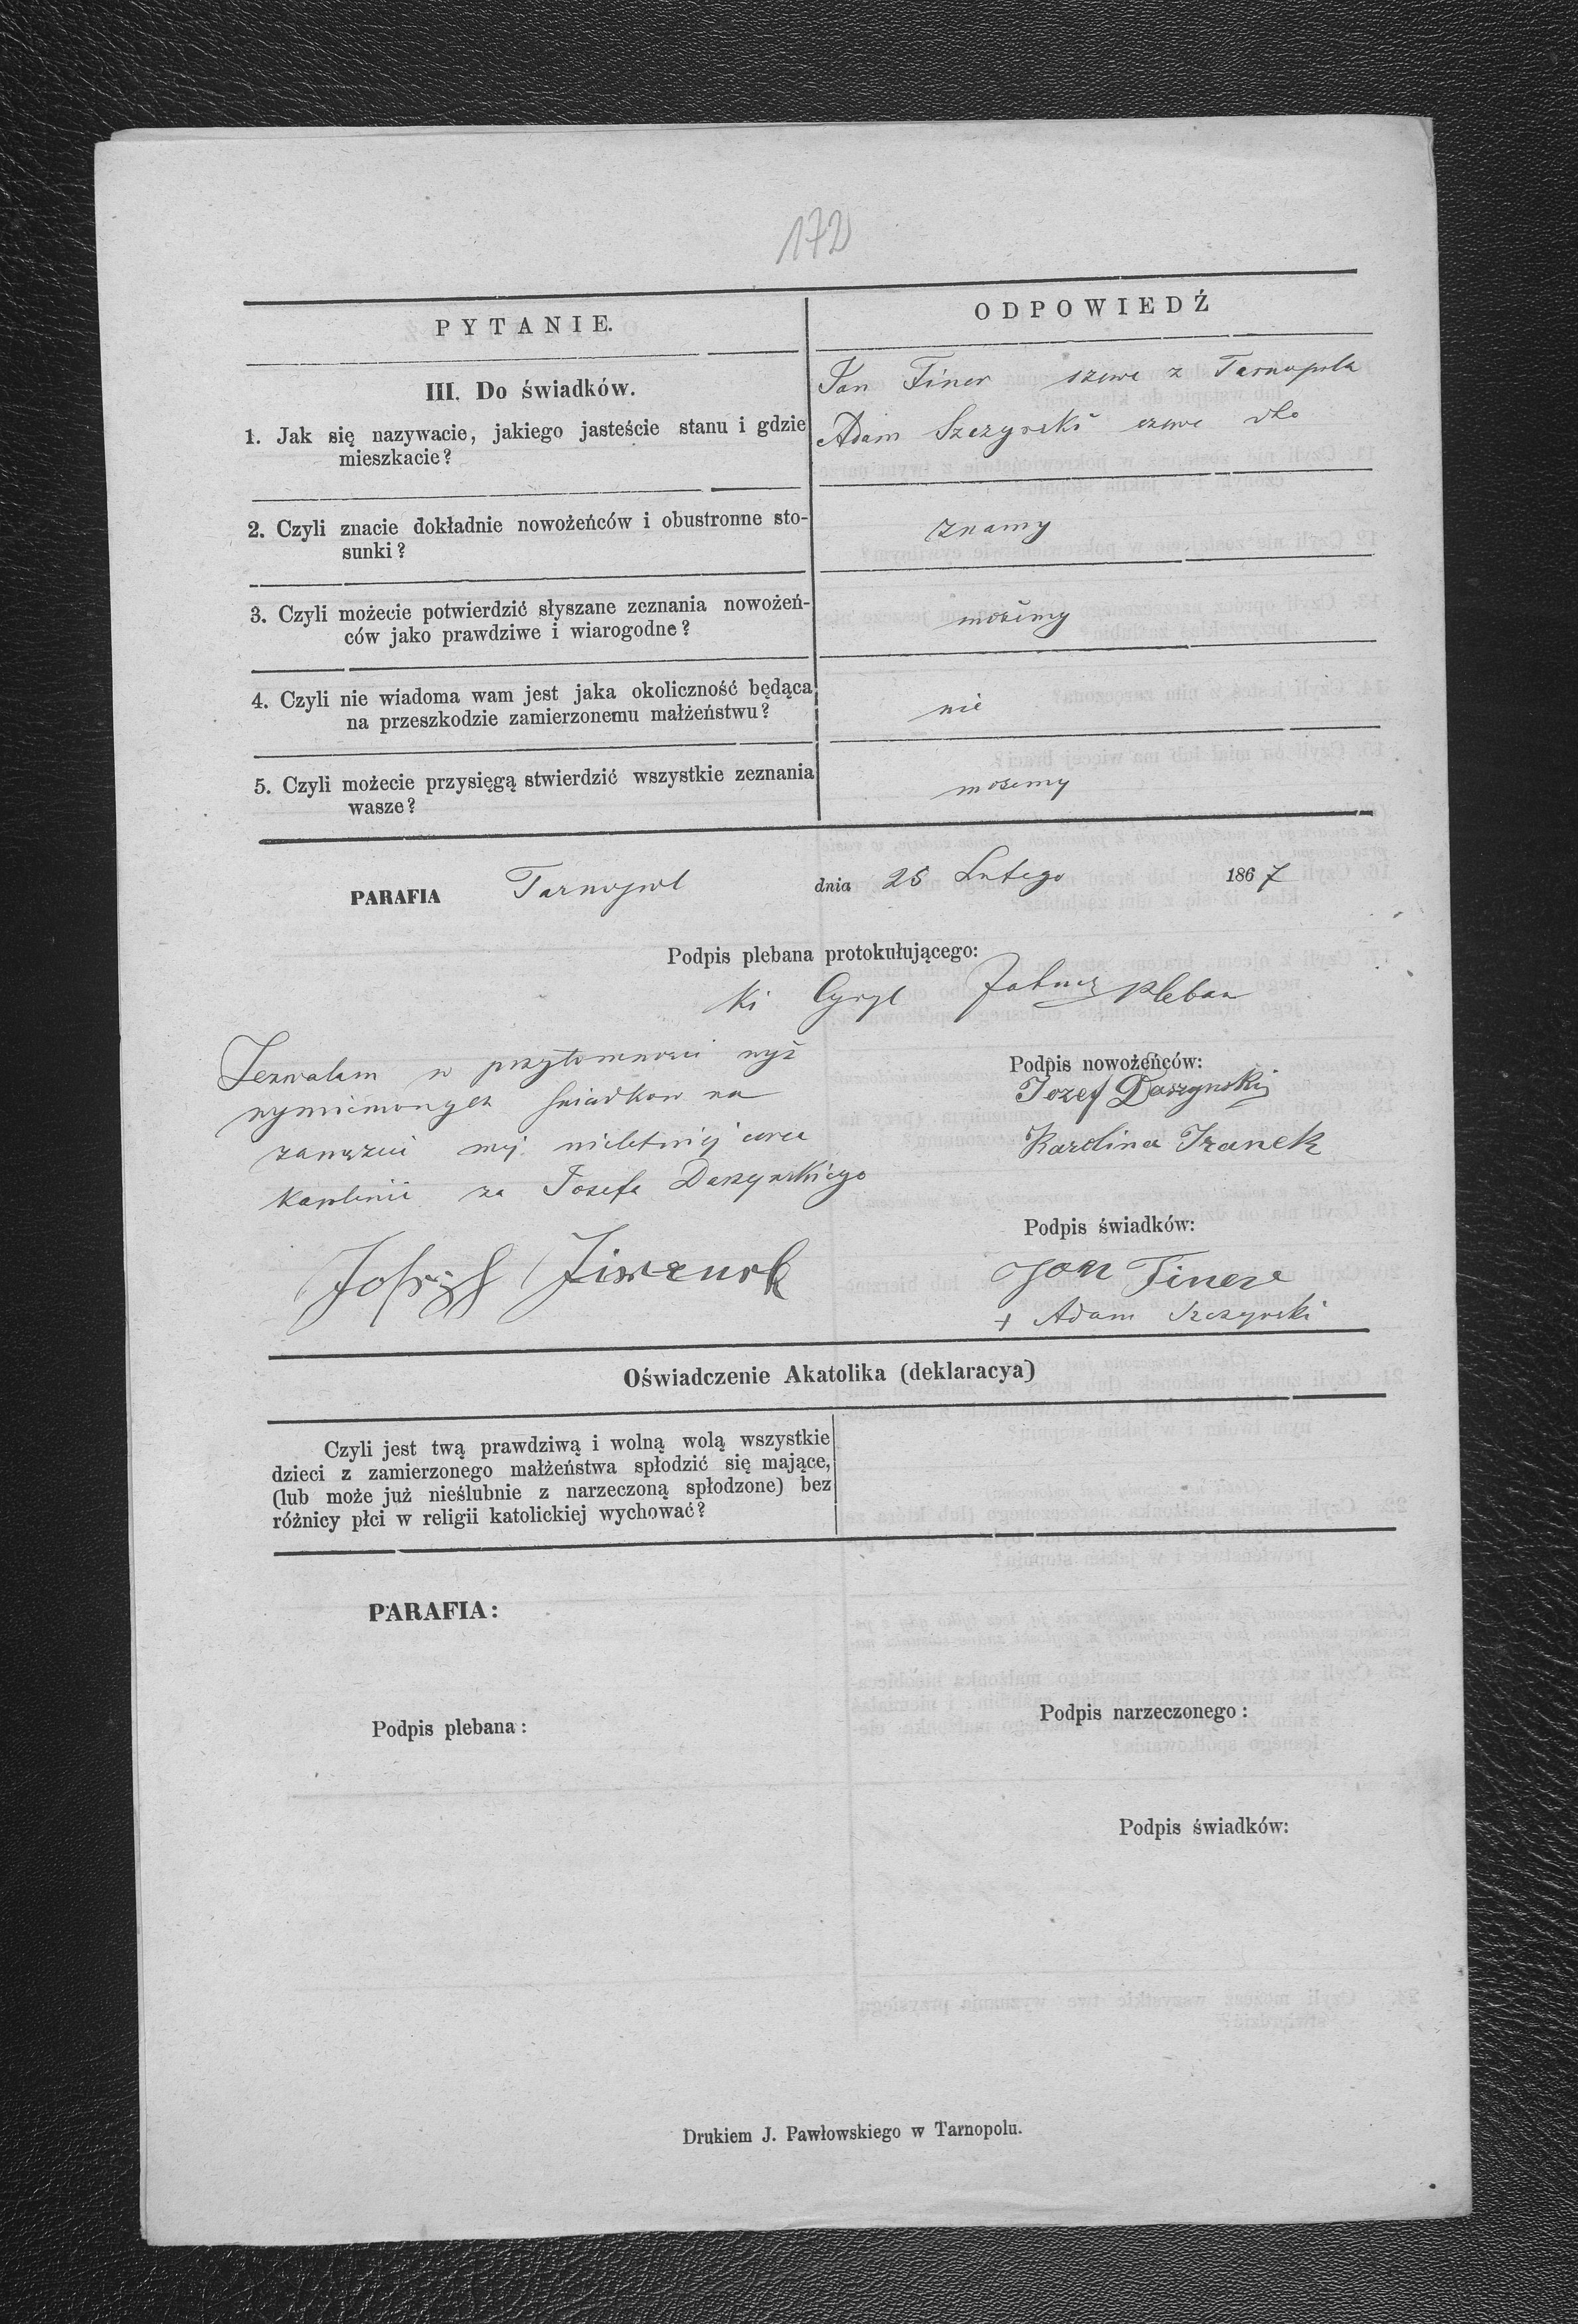 172
PYTANIE.
ODPOWIEDŹ
III. Do świadków.
1. Jak się nazywacie, jakiego jasteście stanu i gdzie
mieszkacie?
Jan Finer szewc z Tarnopola
Adam Szczyrski szewc dto
2. Czyli znacie dokładnie nowożeńców i obustronne sto-
sunki?
znamy
3. Czyli możecie potwierdzić słyszane zeznania nowożeń-
ców jako prawdziwe i wiarogodne?
możemy
4. Czyli nie wiadoma wam jest jaka okoliczność będąca
na przeszkodzie zamierzonemu małżeństwu?
nie
5. Czyli możecie przysięgą stwierdzić wszystkie zeznania
wasze?
możemy
PARAFIA Tarnopol dnia 25 Lutego 1867
Podpis plebana protokułującego:
Cyryl pleban
Zezwalam w przytomności wyż
wymienionych świadkow na
zamęzcie mej nieletniej corce
Karolinie za Józefa Daszyńskiego
Podpis nowożeńców:
Jozef Daszynski
Karolina Iranek
Podpis świadków:
Jan Finer
+ Adam Szczyrski
Oświadczenie Akatolika (deklaracya)
Czyli jest twą prawdziwą i wolną wolą wszystkie
dzieci z zamierzonego małżeństwa spłodzić się mające,
(lub może już nieślubnie z narzeczoną spłodzone) bez
różnicy płci w religii katolickiej wychować?
PARAFIA:
Podpis plebana:
Podpis narzeczonego:
Podpis świadków:
Drukiem J. Pawłowskiego w Tarnopolu.